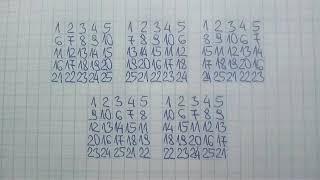 1 2 3 4 5
6 7 8 9 10
11 12 13 14 15
16 17 18 19 20
21 22 23 24 25
1 2 3 4 5
7 8 9 10 6
13 14 15 11 12
19 20 16 17 18
25 21 22 23 24
1 2 3 4 5
8 9 10 6 7
15 11 12 13 14
17 18 19 20 16
24 25 21 22 23
1 2 3 4 5
9 10 6 7 8
12 13 14 15 11
20 16 17 18 19
23 24 25 21 22
1 2 3 4 5
10 6 7 8 9
14 15 11 12 13
18 19 20 16 17
22 23 24 25 21